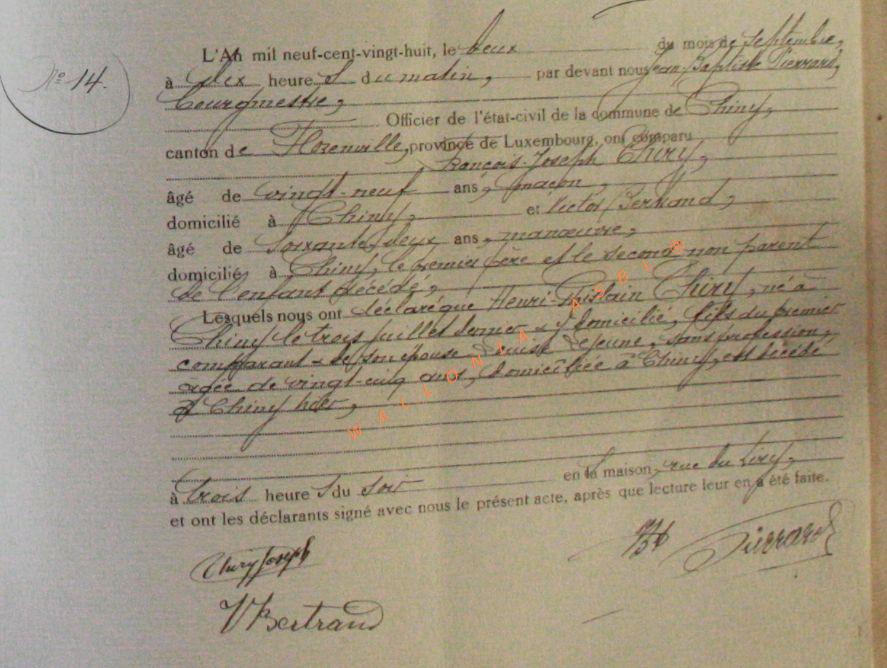 N° 14.
L'An mil neuf-cent-vingt-huit, le deux du mois de septembre,
à dix heure s du matin, par devant nous Jean-Baptiste Pierrard,
bourgmestre,
Officier de l'état-civil de la commune de Chiny,
canton de Florenville, province de Luxembourg, ont comparu
François-Joseph Thiry,
âgé de vingt-neuf ans, maçon,
domicilié à Chiny, et Victor Bertrand,
âgé de soixante-deux ans, manœuvre,
domicilié à Chiny, le premier père et le second non parent
de l'enfant décédé,
Lesquels nous ont déclaré que Henri-Ghislain Thiry, né à
Chiny le trois juillet dernier & y domicilié, fils du premier
comparant & de son épouse Louise Lejeune, sans profession,
agée de vingt-cinq ans, domiciliée à Chiny, est décédé
à Chiny hier,
à trois heure s du soir en sa maison, rue du
et ont les déclarants signé avec nous le présent acte, après que lecture leur en a été faite.
Thiry Joseph
JB Pierrard
VBertrand
WALLONIA ASBL